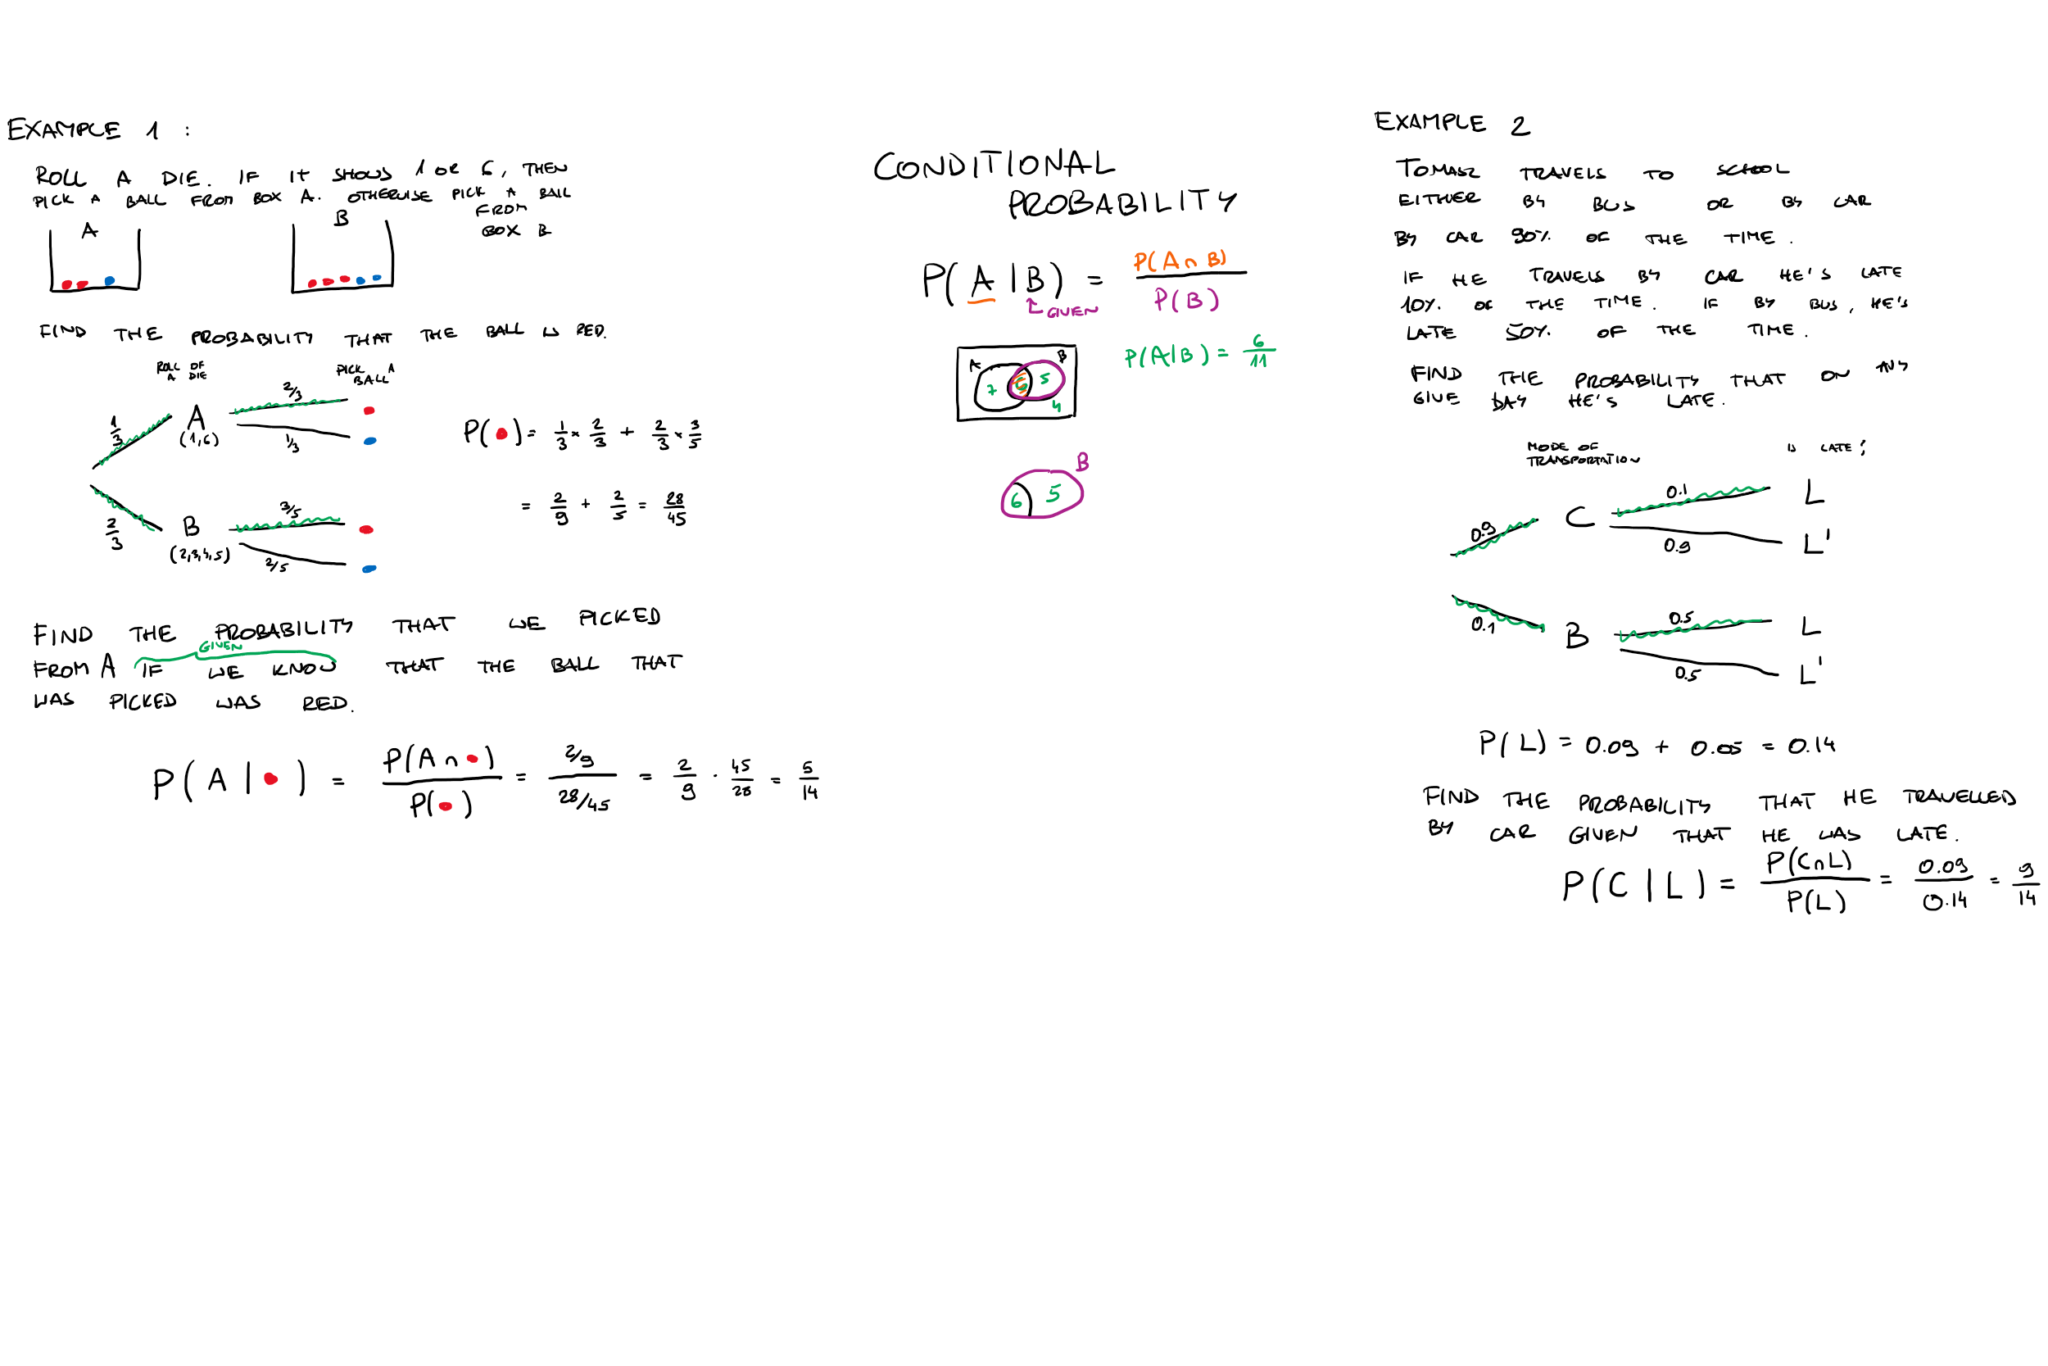 EXAMPLE 1 :
ROLL A DIE. IF IT SHOWS 1 OR 6, THEN
PICK A BALL FROM BOX A. OTHERWISE PICK A BALL
FROM
BOX B
A
B
FIND THE PROBABILITY THAT THE BALL IS RED.
ROLL OF
A DIE
PICK A
BALL
1/3
A
(1,6)
2/3
1/3
2/3
B
(2,3,4,5)
3/5
2/5
P( ) = 1/3 × 2/3 + 2/3 × 3/5
= 2/9 + 2/5 = 28/45
FIND THE PROBABILITY THAT WE PICKED
GIVEN
FROM A IF WE KNOW THAT THE BALL THAT
WAS PICKED WAS RED.
P( A | ) = P(A ∩ )/P( ) = 2/9 / 28/45 = 2/9 · 45/28 = 5/14
CONDITIONAL
PROBABILITY
P( A | B ) = P(A ∩ B)/P(B)
GIVEN
P(A|B) = 6/11
A
B
7
6
5
4
B
6
5
EXAMPLE 2
TOMASZ TRAVELS TO SCHOOL
EITHER BY BUS OR BY CAR
BY CAR 90% OF THE TIME.
IF HE TRAVELS BY CAR HE'S LATE
10% OF THE TIME. IF BY BUS, HE'S
LATE 50% OF THE TIME.
FIND THE PROBABILITY THAT ON ANY
GIVE DAY HE'S LATE.
MODE OF
TRANSPORTATION
IS LATE?
0.9
C
0.1
L
0.9
L'
0.1
B
0.5
L
0.5
L'
P(L) = 0.09 + 0.05 = 0.14
FIND THE PROBABILITY THAT HE TRAVELLED
BY CAR GIVEN THAT HE WAS LATE.
P(C | L) = P(C∩L)/P(L) = 0.09/0.14 = 9/14